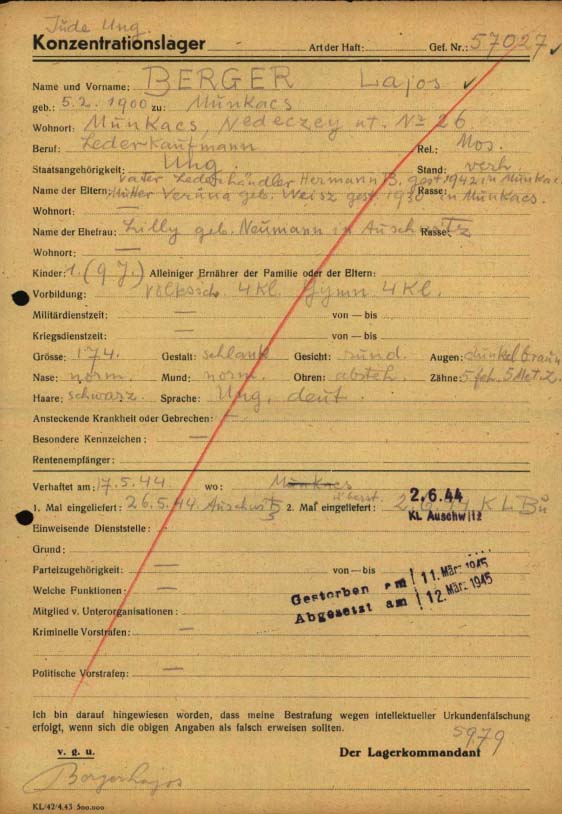 Jude Ung.
Konzentrationslager Art der Haft: Gef. Nr.: 57027
Name und Vorname: BERGER Lajos
geb.: 5.2.1900 zu: Munkacs
Wohnort: Munkacs, Nedeczey ut. No 26
Beruf: Leder-Kaufmann Rel.: Mos.
Staatsangehörigkeit: Ung. Stand: verh.
Vater Lederhändler Hermann B. gest. 1942 in Munkac
Name der Eltern: Rasse:
Mutter Veräna geb. Weisz gest. 1930 in Munkacs.
Wohnort: —
Name der Ehefrau: Lilly geb. Neumann in Auschwitz Rasse:
Wohnort: —
Kinder: 1. (9 J.) Alleiniger Ernährer der Familie oder der Eltern:
Vorbildung: Volkssch. 4 Kl. Gymn 4 Kl.
Militärdienstzeit: — von — bis —
Kriegsdienstzeit: — von — bis —
Grösse: 174. Gestalt: schlank Gesicht: rund. Augen: dunkelbraun
Nase: norm. Mund: norm. Ohren: absteh. Zähne: 5 feh. 5 Met. Z.
Haare: schwarz. Sprache: Ung, deut.
Ansteckende Krankheit oder Gebrechen: —
Besondere Kennzeichen: —
Rentenempfänger:
Verhaftet am: 17.5.44. wo: Munkacs
1. Mal eingeliefert: 26.5.44. Auschwitz 2. Mal eingeliefert: überst. 2.6.44 KL. Bu
2.6.44
KL Auschwitz
Einweisende Dienststelle:
Grund:
Parteizugehörigkeit: — von — bis
Welche Funktionen: —
Gestorben am 11. März 1945
Abgesetzt am 12. März 1945
Mitglied v. Unterorganisationen:
Kriminelle Vorstrafen: —
Politische Vorstrafen: —
Ich bin darauf hingewiesen worden, dass meine Bestrafung wegen intellektueller Urkundenfälschung
erfolgt, wenn sich die obigen Angaben als falsch erweisen sollten.
5979
v. g. u. Der Lagerkommandant
Berger Lajos
KL/42/4.43 500.000